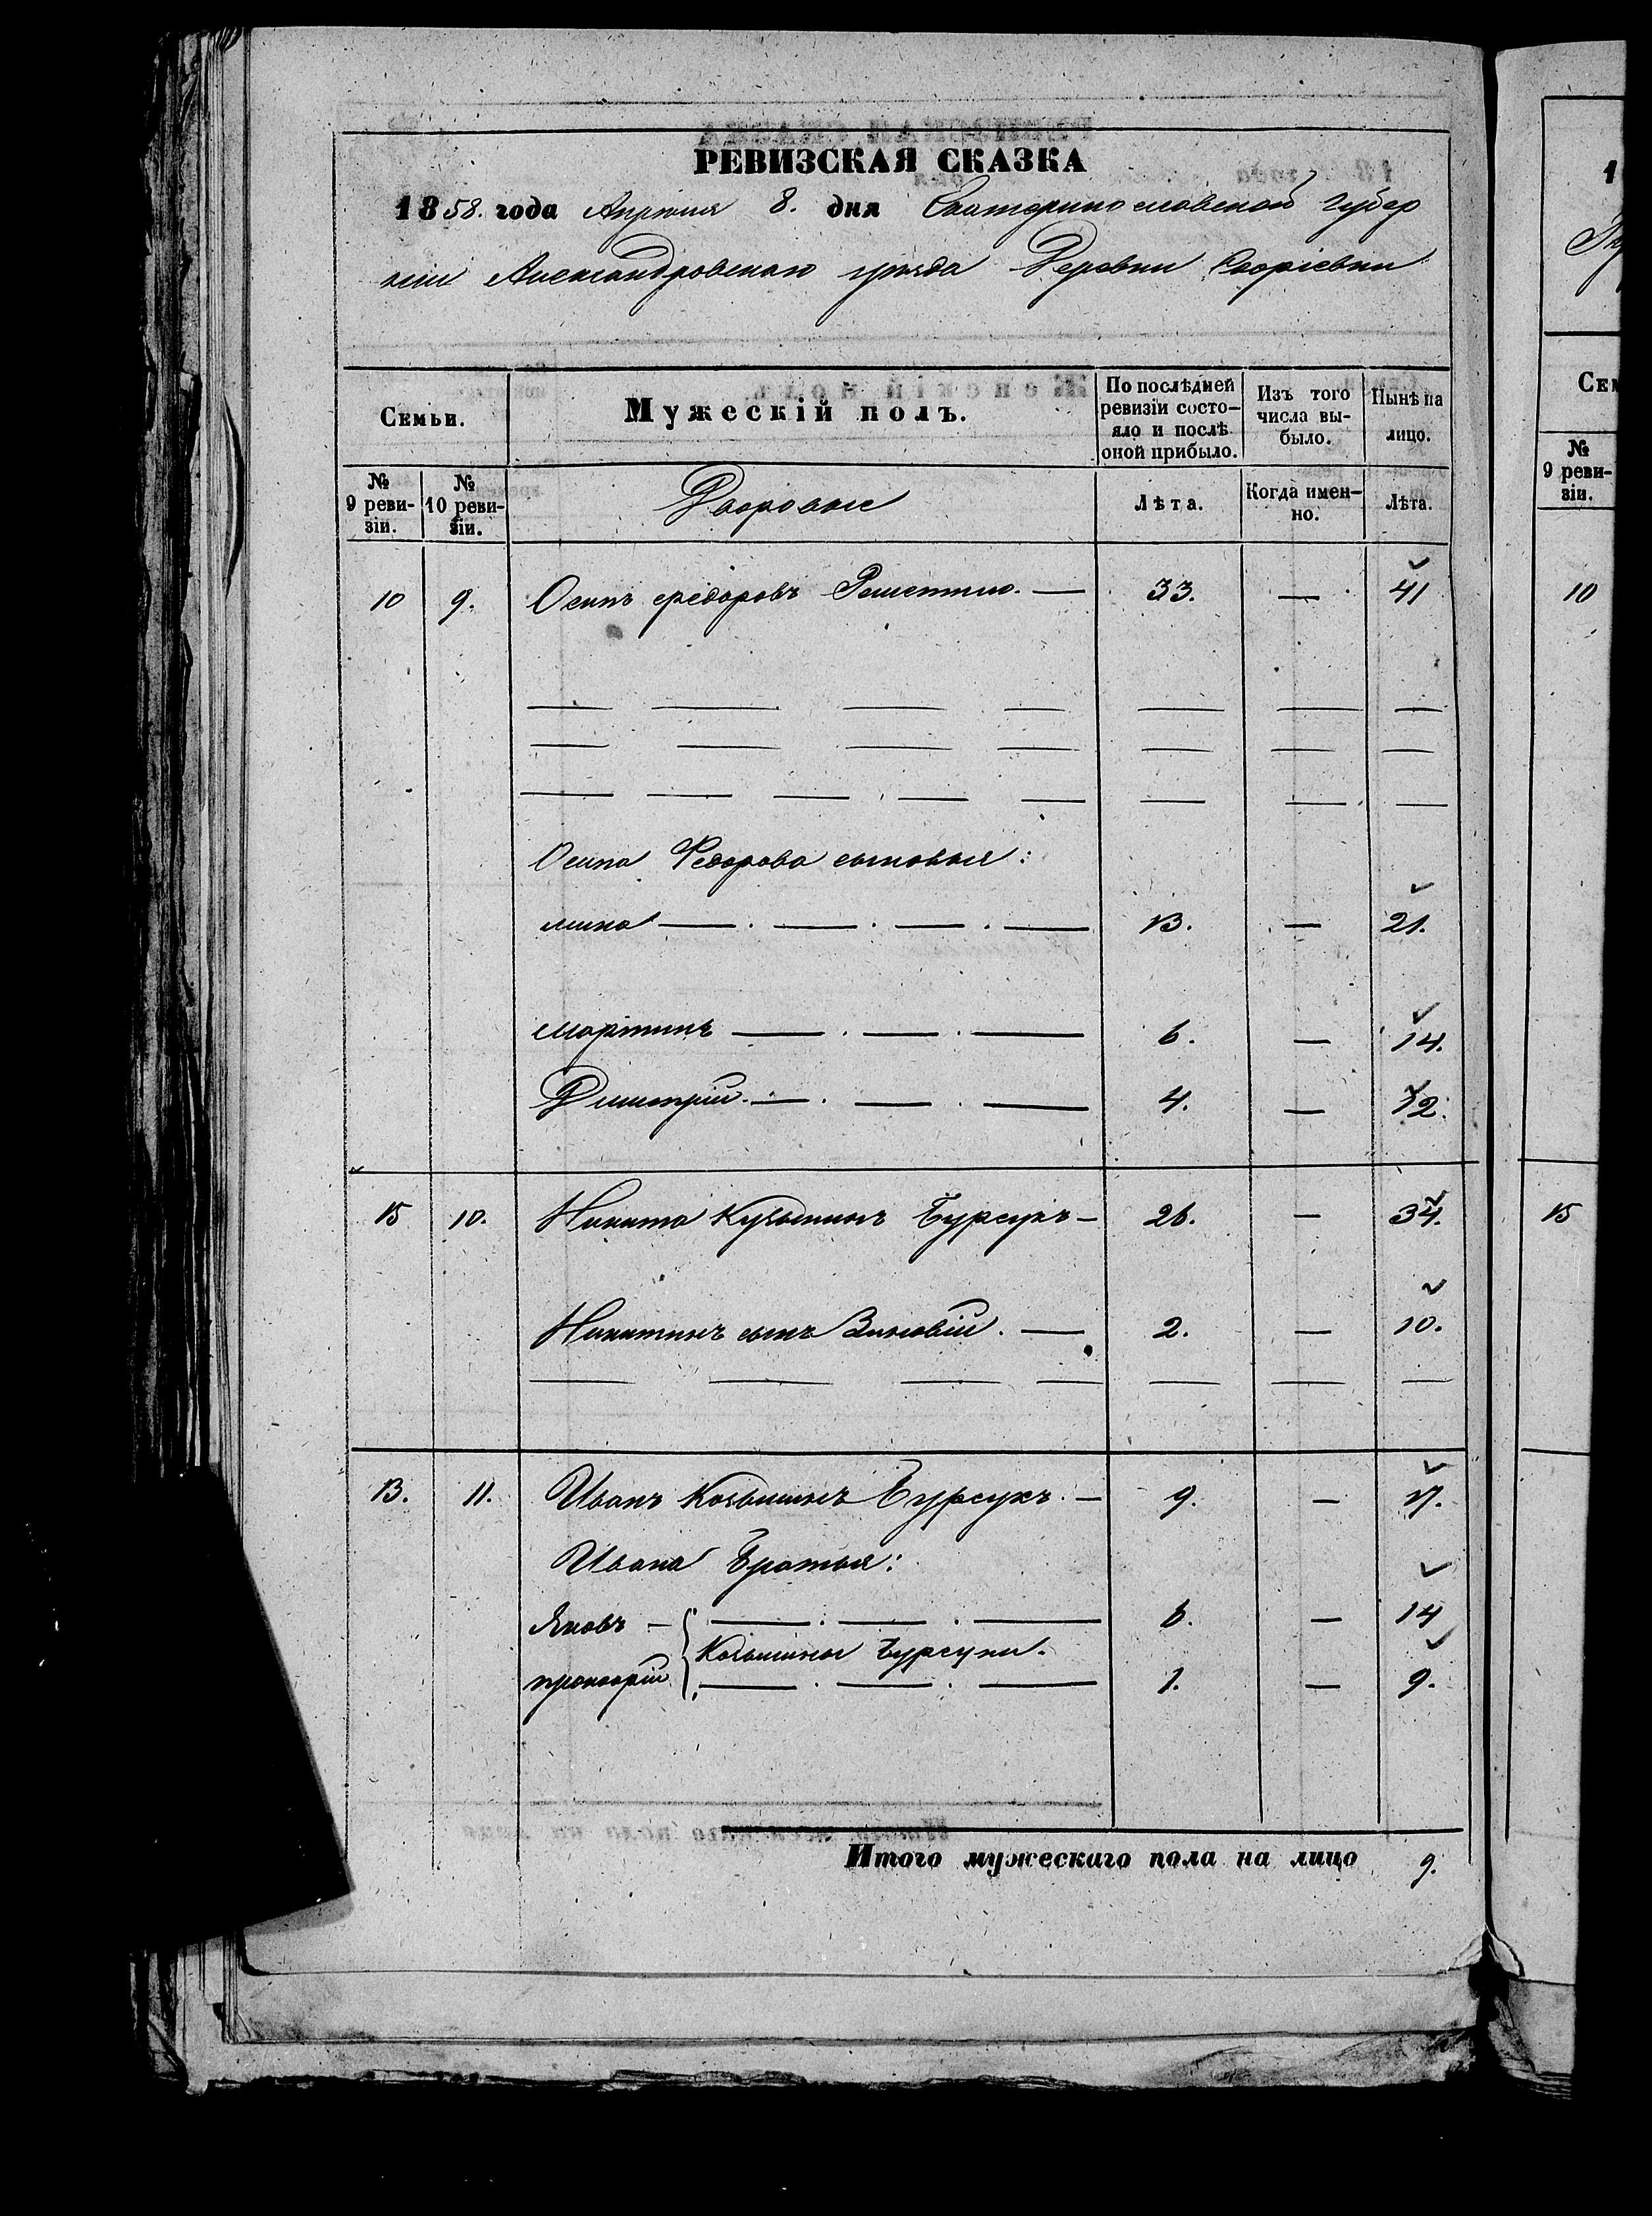 РЕВИЗСКАЯ СКАЗКА
1858. года Апреля 8. дня Екатеринославской губер
ніи Александровскаго уѣзда Деревни
Семьи.
Мужескій полъ.
По послѣдней ревизіи состо-
яло и послѣ оной прибыло.
Изъ того числа вы-
было.
Нынѣ на лицо.
№ 9 реви-
зіи.
№ 10 реви-
зіи.
Дворовые
Лѣта.
Когда имен-
но.
Лѣта.
10 9. Осипъ Федоровъ — 33. — 41
Осипа Федорова сыновья:
мина — 13. — 21.
мартинъ — 6. — 14.
Дмитрій — 4. — 12.
15 10. Никита Кузьминъ Бурсукъ — 26. — 34.
Никитинъ сынъ Зиновій — 2. — 10.
13. 11. Иванъ Козьминъ Бурсукъ — 9. — 17.
Ивана братья:
Яковъ — 6. — 14
Козьмины Бурсуки.
1. — 9.
Итого мужескаго пола на лицо 9.
1
Сем
№ 9 реви-
зіи.
10
15